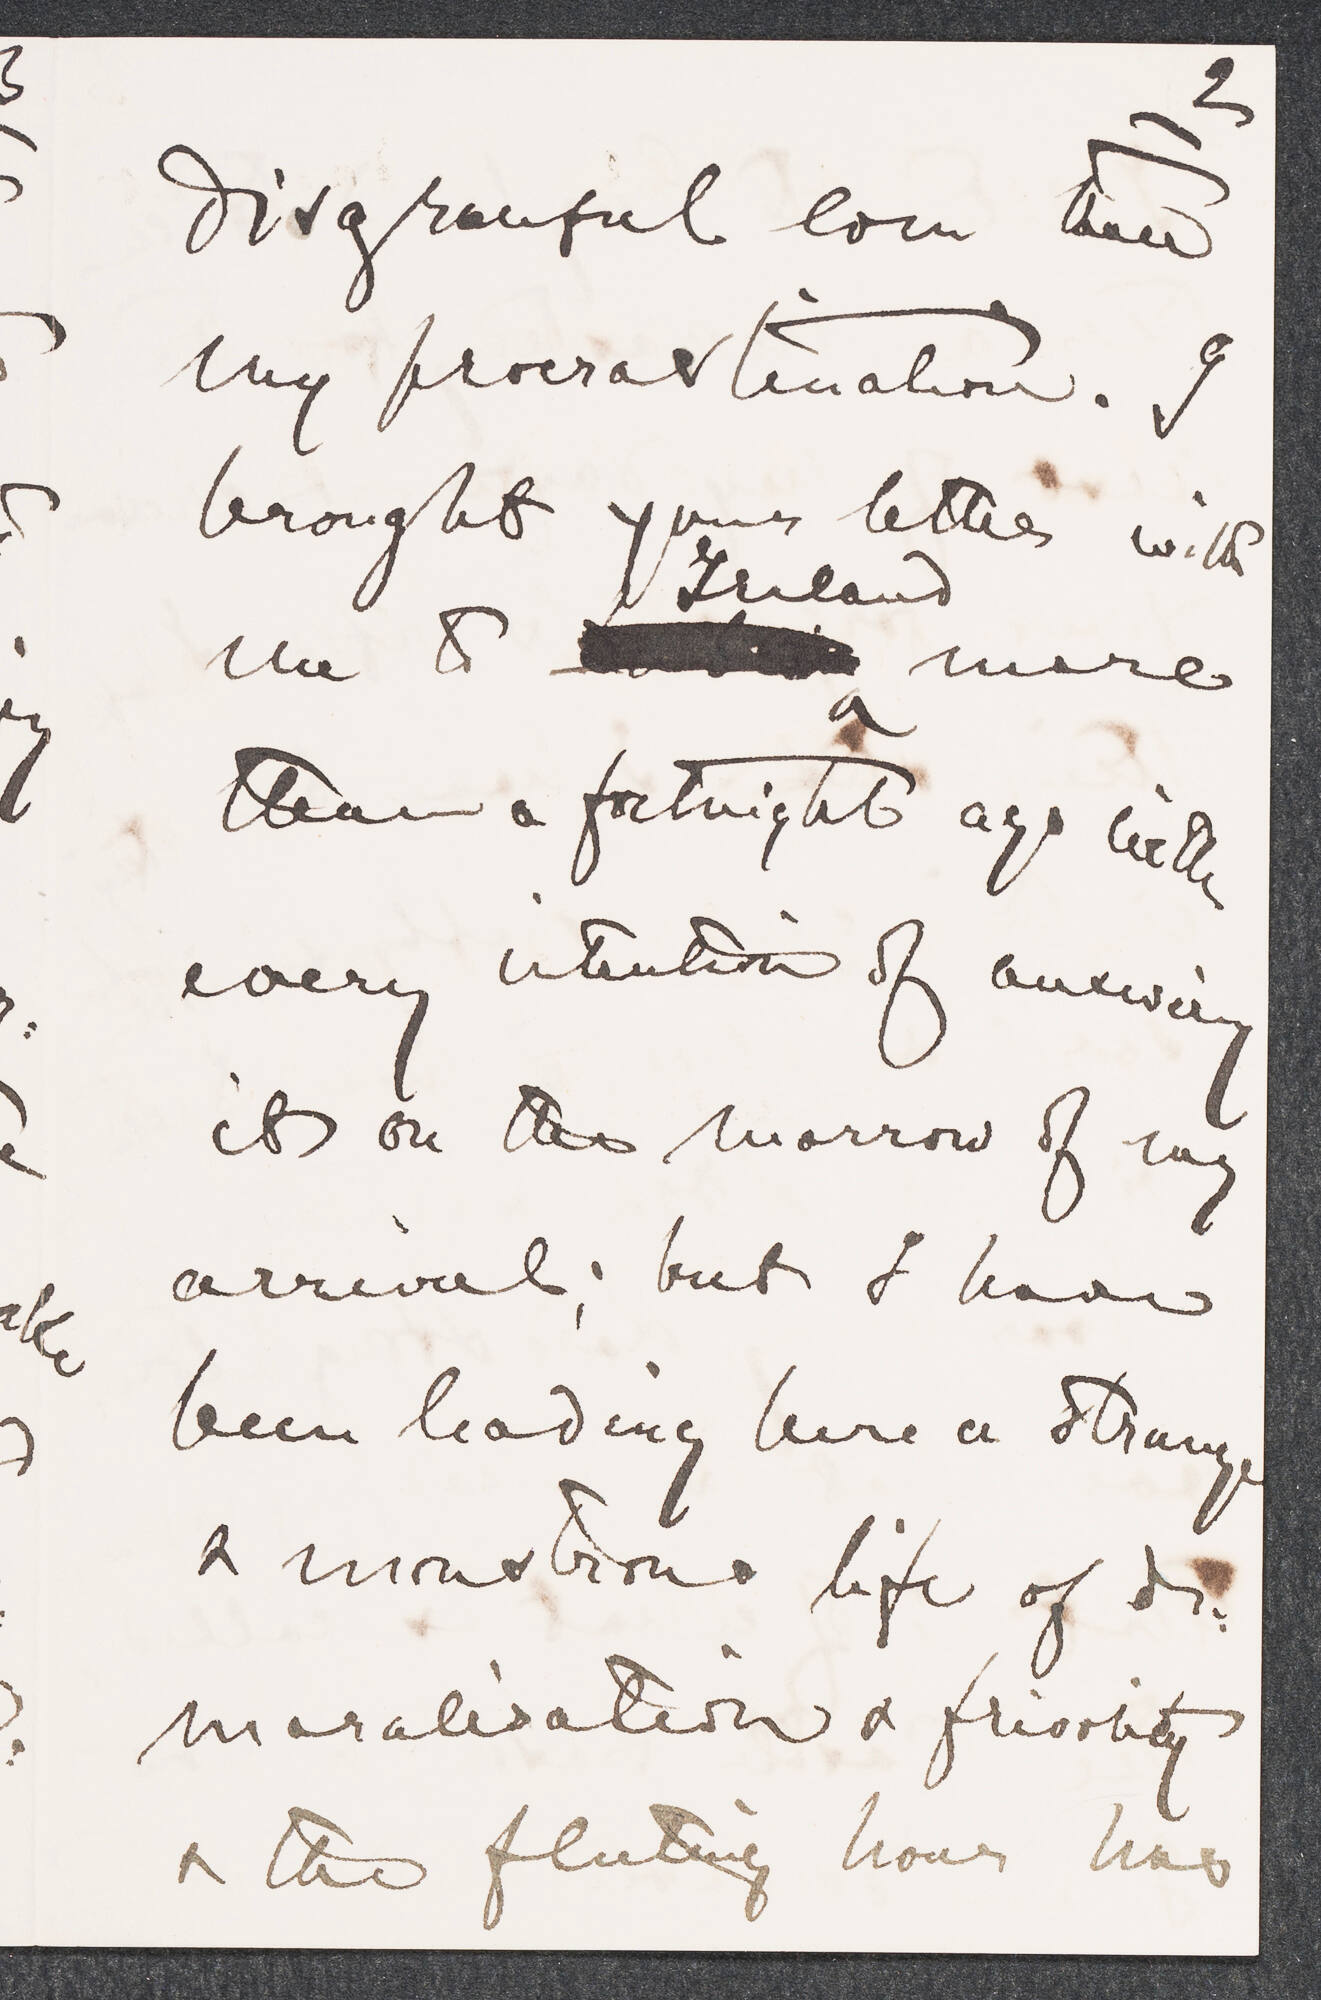 2
disgraceful even than
my procrastination. I
brought your letter with
Ireland
me to more
than a fortnight ago with
every intention of answering
it on the morrow of my
arrival; but I have
been leading here a strange
& monstrous life of de-
moralisation & frivolity
& the fleeting hour has